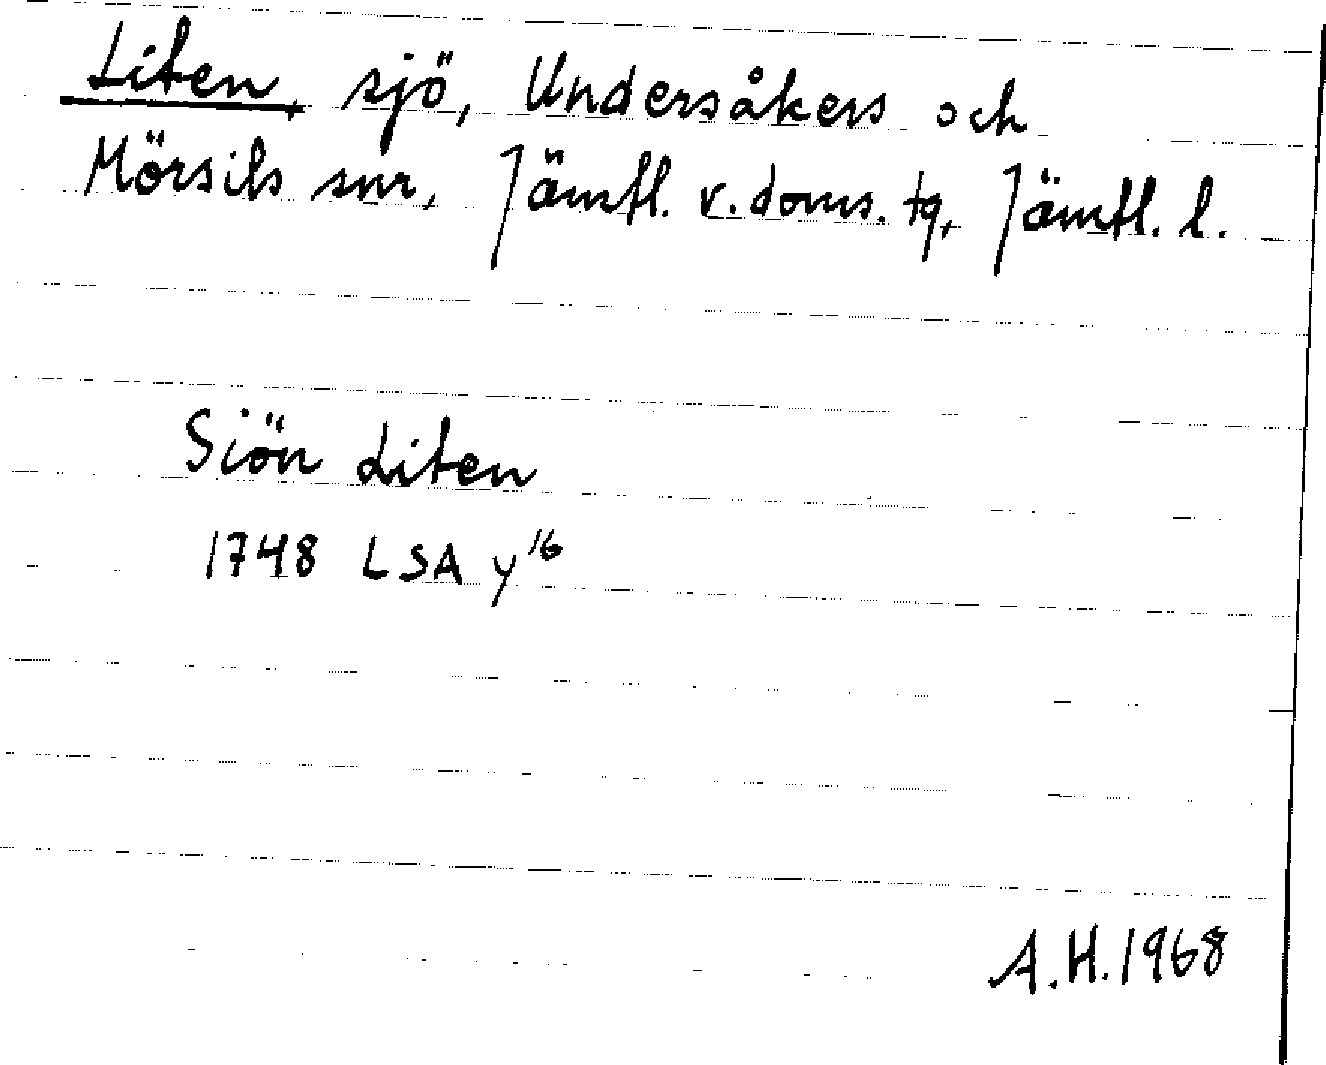 Liten, sjö, Undersåkers och
Mörsils snr, Jämtl. v. doms. tg, Jämtl. l.
Siön Liten
1748 LSA y¹⁶
A.H. 1968